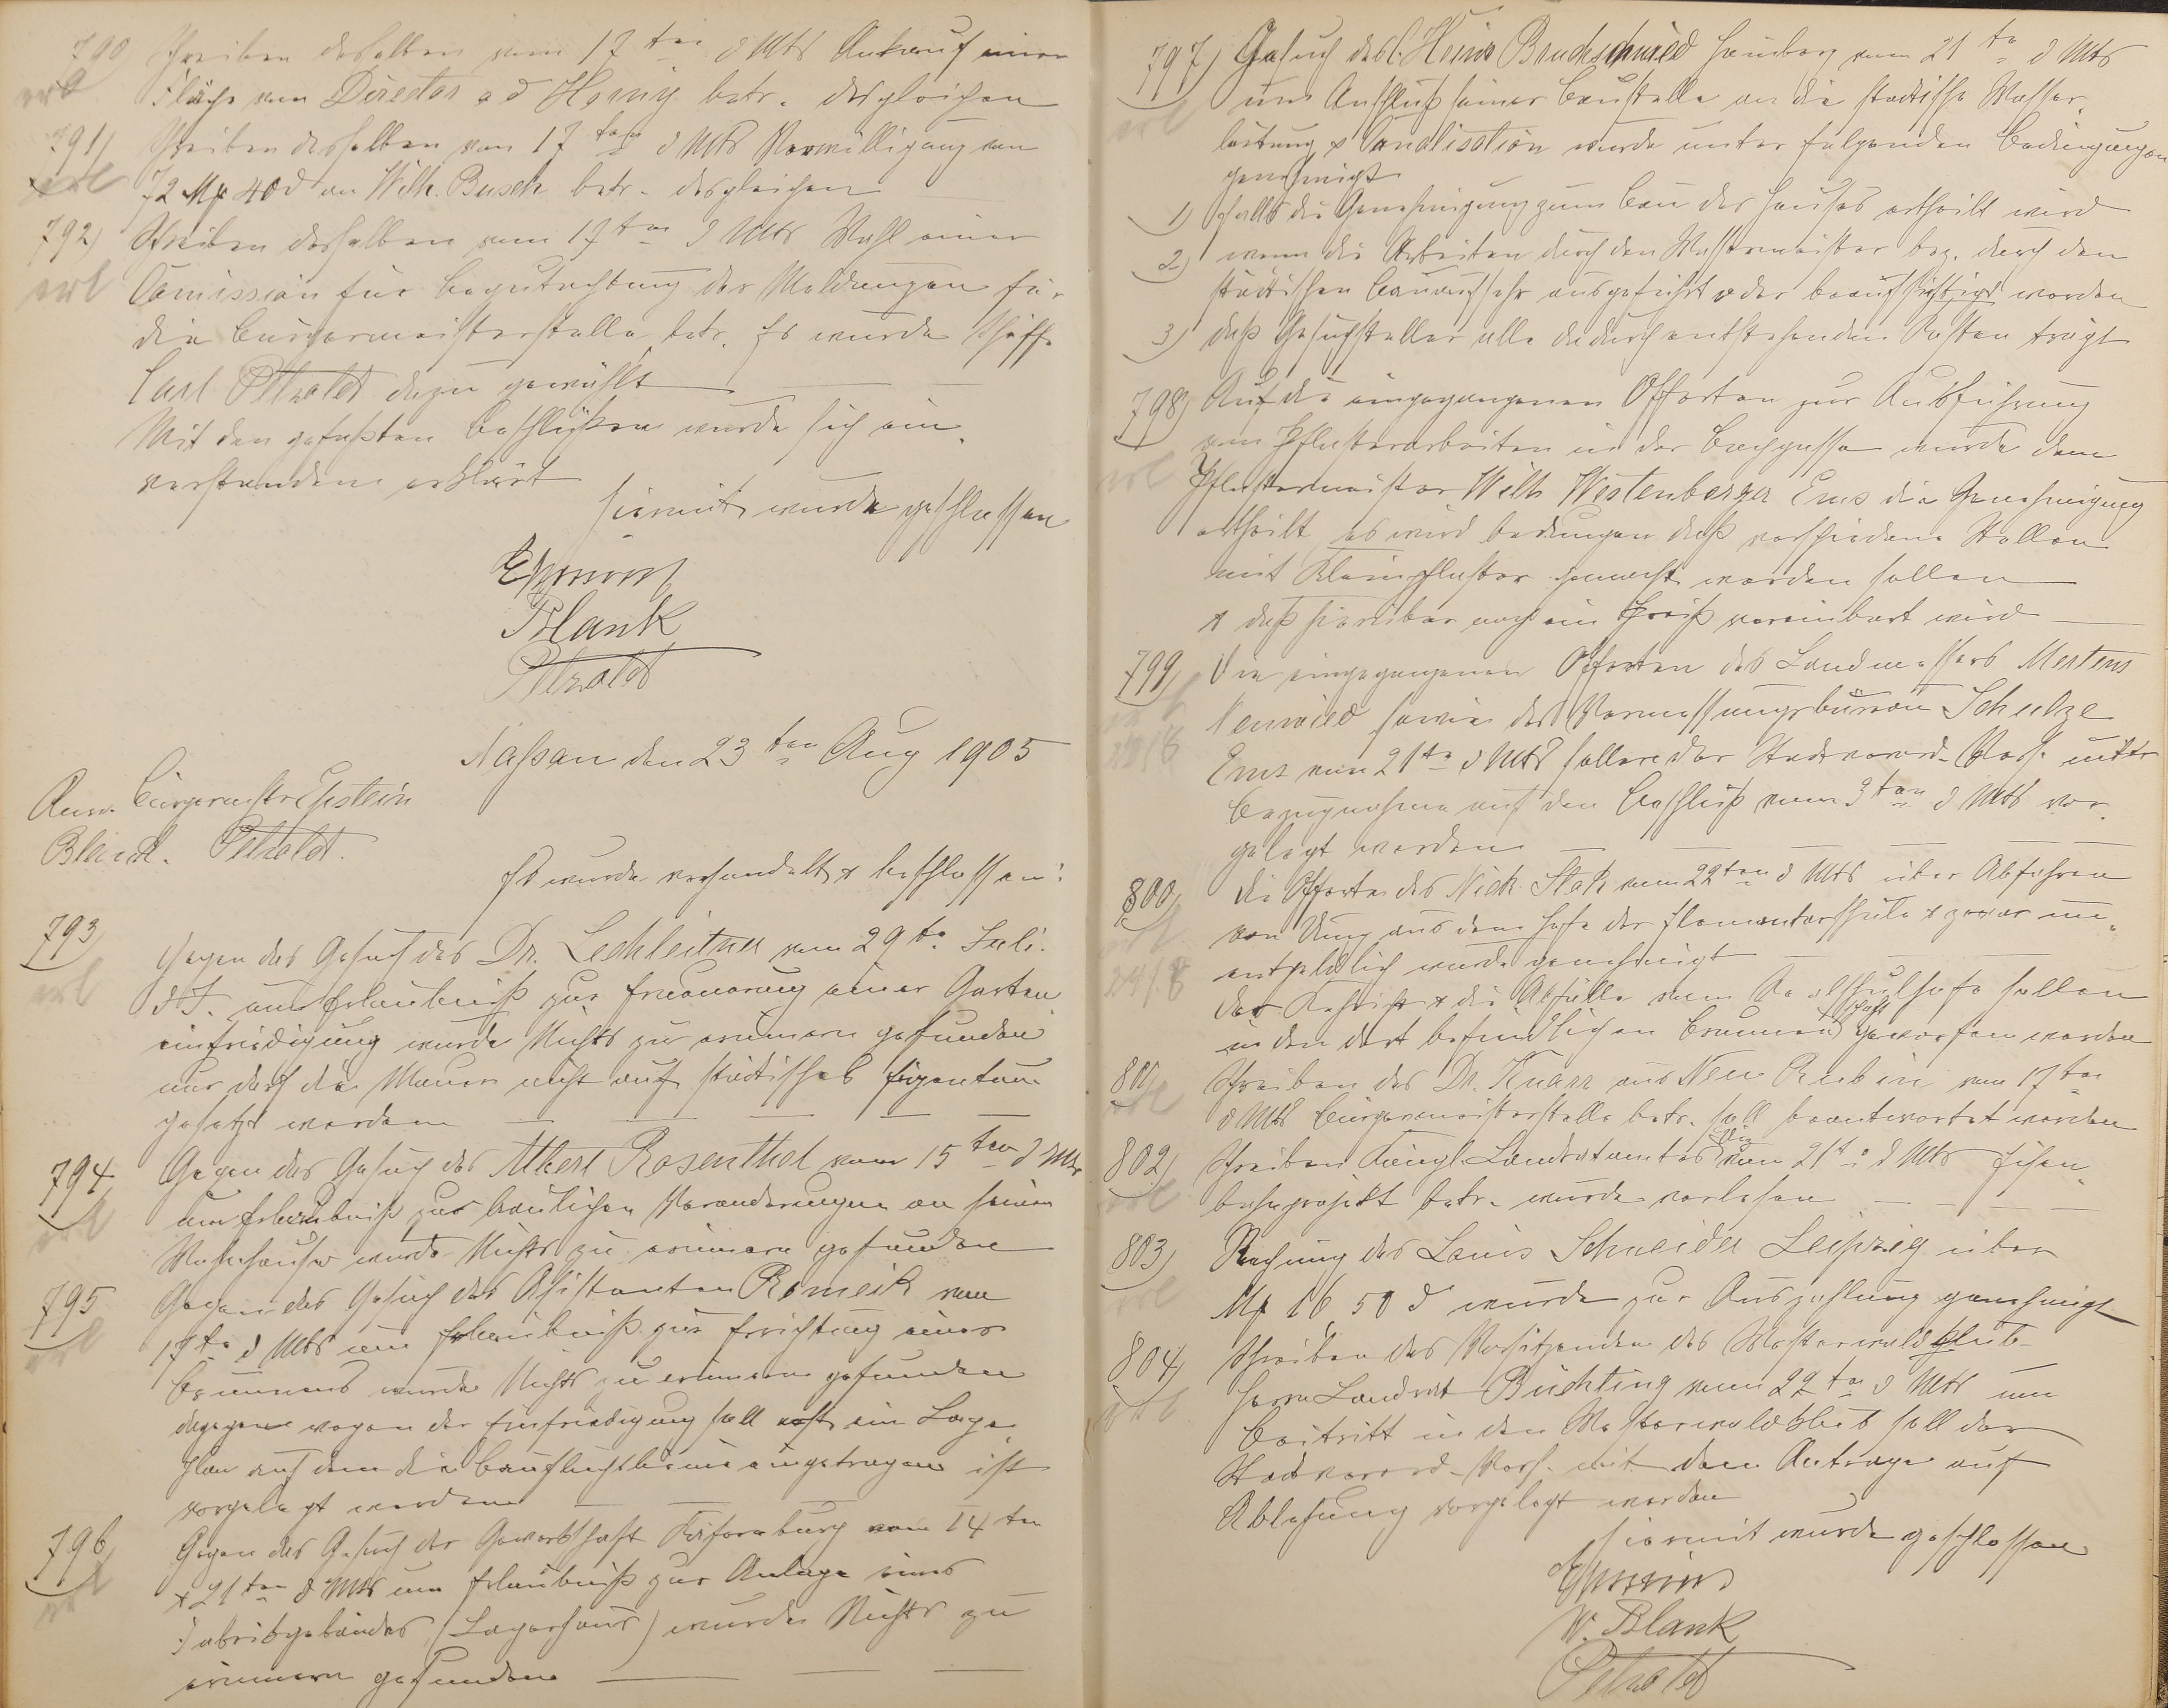 790) Schreiben desselben vom 17ten d Mts Ankauf einer
erl Fläche vom Director a d Horny betr. desgleichen
791) Schreiben desselben vom 17ten d Mts Verwilligung von
erl 72 Mk 40 d an Wilh. Busch betr. desgleichen
792) Schreiben desselben vom 17ten d Mts Wahl einer
erl Comission für Begutachtung der Meldungen für
die Bürgermeisterstelle betr. Es wurde Schöffe
Carl Petzoldt dazu gewählt
Mit den gefaßten Beschlüssen wurde sich ein-
verstanden erklärt
Hiermit wurde geschlossen
Epstein
Blank
Petzoldt
Nassau den 23ten Aug 1905
Anw. Bürgermstr Epstein
Blank. Petzoldt.
Es wurde verhandelt & beschlossen:
793 Gegen das Gesuch des Dr. Lechleitner vom 29te Juli
erl d J. um Erlaubniß zur Erneuerung einer Garten-
einfriedigung wurde Nichts zu erinnern gefunden
nur darf die Mauer nicht auf städtisches Eigentum
gesetzt werden
794 Gegen das Gesuch des Albert Rosenthal vom 15ten d Mts
erl um Erlaubniß zur baulichen Veränderungen an seinem
Wohnhause wurde Nichts zu erinnern gefunden
795 Gegen das Gesuch des Assistenten Romeik vom
erl 17te d Mts um Erlaubniß zur Errichtung eines
Brunnens wurde Nichts zu erinnern gefunden
dagegen wegen der Einfriedigung soll erst ein Lage-
plan auf dem die Baufluchtlinie eingetragen ist
vorgelegt werden
796 Gegen das Gesuch der Gewerkschaft Käfernburg vom 14ten
erl & 21ten d Mts um Erlaubniß zur Anlage eines
Fabrikgebäudes (Lagerhaus) wurde Nichts zu
erinnern gefunden
797) Gesuch des C. Heinr Bruchschmied Homberg vom 21te d Mts
erl um Anschluß seiner Baustelle an die städtische Wasser-
leitung & Canalisation wurde unter folgenden Bedingungen
genehmigt
1) falls die Genehmigung zum Bau des Hauses ertheilt wird
2) wenn die Arbeiten durch den Wassermeister bez. durch den
städtischen Bauaufseher ausgeführt oder beaufsichtigt werden
3) daß Gesuchsteller alle dadurch entstehenden Kosten trägt
798) Auf die eingegangenen Offerten zur Ausführung
von Pflasterarbeiten in der Bachgasse wurde dem
erl Pflastermeister Wilh Westenberger Ems die Genehmigung
ertheilt es wird bedungen daß verschiedene Stellen
mit Kleinpflaster gemacht werden sollen
& daß hierüber noch ein Preiß vereinbart wird
799) Die eingegangenen Offerten des Landmessers Mertens
erl Neuwied sowie des Vermessungsbüreau Schulze
Ems vom 21te d Mts sollen der Stadtverord-Vers. unter
Bezugnahme auf den Beschluß vom 3ten d Mts vor-
gelegt werden
800) Die Offerte des Nick. Stah vom 22ten d Mts über Abfahren
erl von Dung aus dem Hofe der Elementarschule & zwar un-
24/8 entgeldlich wurde genehmigt
der Kehricht & die Abfälle vom Realschulhofe sollen
in den dort befindlichen Brunnenschaft geworfen werden
801) Schreiben des Dr. Knarr aus Neu Rubin vom 17ten
erl d Mts Bürgermeisterstelle betr. soll beantwortet werden
802) Schreiben Königl. Landratamtes Diez vom 21te d Mts Eisen-
erl bahnprojekt betr. wurde verlesen
803) Rechnung des Louis Schneider Leipzig über
erl Mk 16 50 d wurde zur Auszahlung genehmigt
804) Schreiben des Vorsitzenden des Westerwaldklub-
erl Herrn Landrat Büchting vom 22te d Mts um
Beitritt in den Westerwaldklub soll der
Stadtverord-Vers. mit dem Antrage auf
Ablehnung vorgelegt werden
Hiermit wurde geschlossen
Epstein
W. Blank
Petzoldt